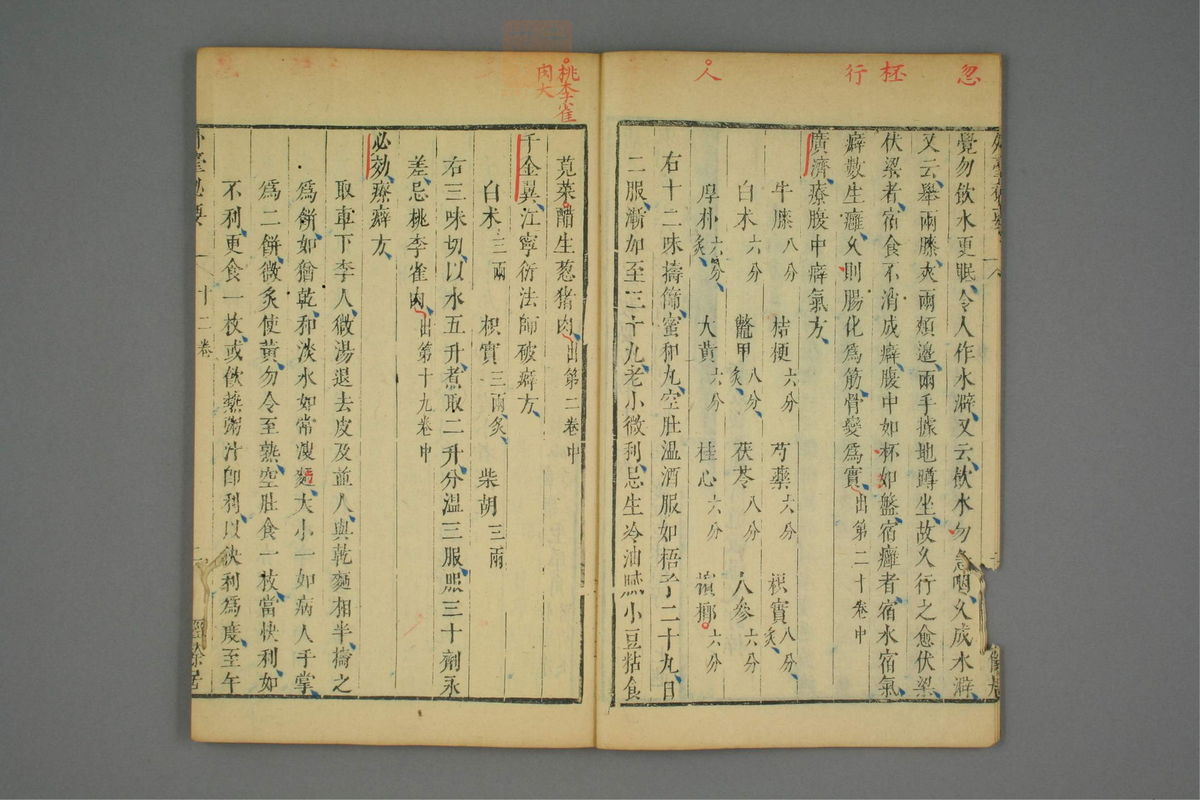 忽
柸
行
人
覺勿飲水更眠、令人作水澼、又云、飲水勿急咽、久成水澼
又云、舉兩膝、夾兩頰邊、兩手據地蹲坐、故久行之愈伏梁、
伏梁者、宿食不消成癖、腹中如杯如盤、宿癰者、宿水宿氣
癖數生癰、久則腸化為筋、骨變為實、出第二十卷中
廣濟療腹中癖氣方、
牛膝八分 桔梗六分 芍藥六分 枳實八分炙
白朮六分 鼈甲八分炙 茯苓八分 人參六分
厚朴六分炙 大黃六分 桂心六分 檳榔六分
右十二味擣篩、蜜和丸、空肚溫酒服如梧子二十丸、日
二服、漸加至三十九、老小微利、忌生冷油膩小豆粘食
桃李雀
肉大
莧菜醋生葱猪肉、出第二卷中
千金翼、江寧衍法師破癖方、
白朮三兩 枳實三兩炙、 柴胡三兩
右三味切、以水五升、煮取二升、分溫三服、㷛三十劑永
差、忌桃李雀肉、出第十九卷中
必効、療癖方、
取車下李人、微湯退去皮及並人、與乾麵相半、擣之
為餅、如猶乾、和淡水如常溲麵、大小一如病人手掌、
為二餅、微炙使黃、勿令至熟、空肚食一枚、當快利、如
不利、更食一枚、或飲熱粥汁即利、以快利為度、至午
十二卷
經餘居